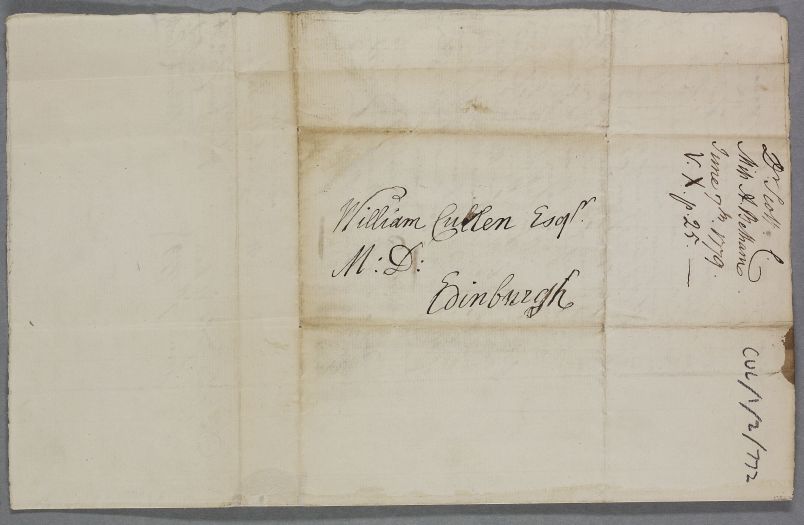 William Cullen Esqr.
M: D:
Edinburgh
Dr Scott C
Miss A Bethune.
June 7th. 1779.
V. X. p. 25. —
CUL/1/2/772